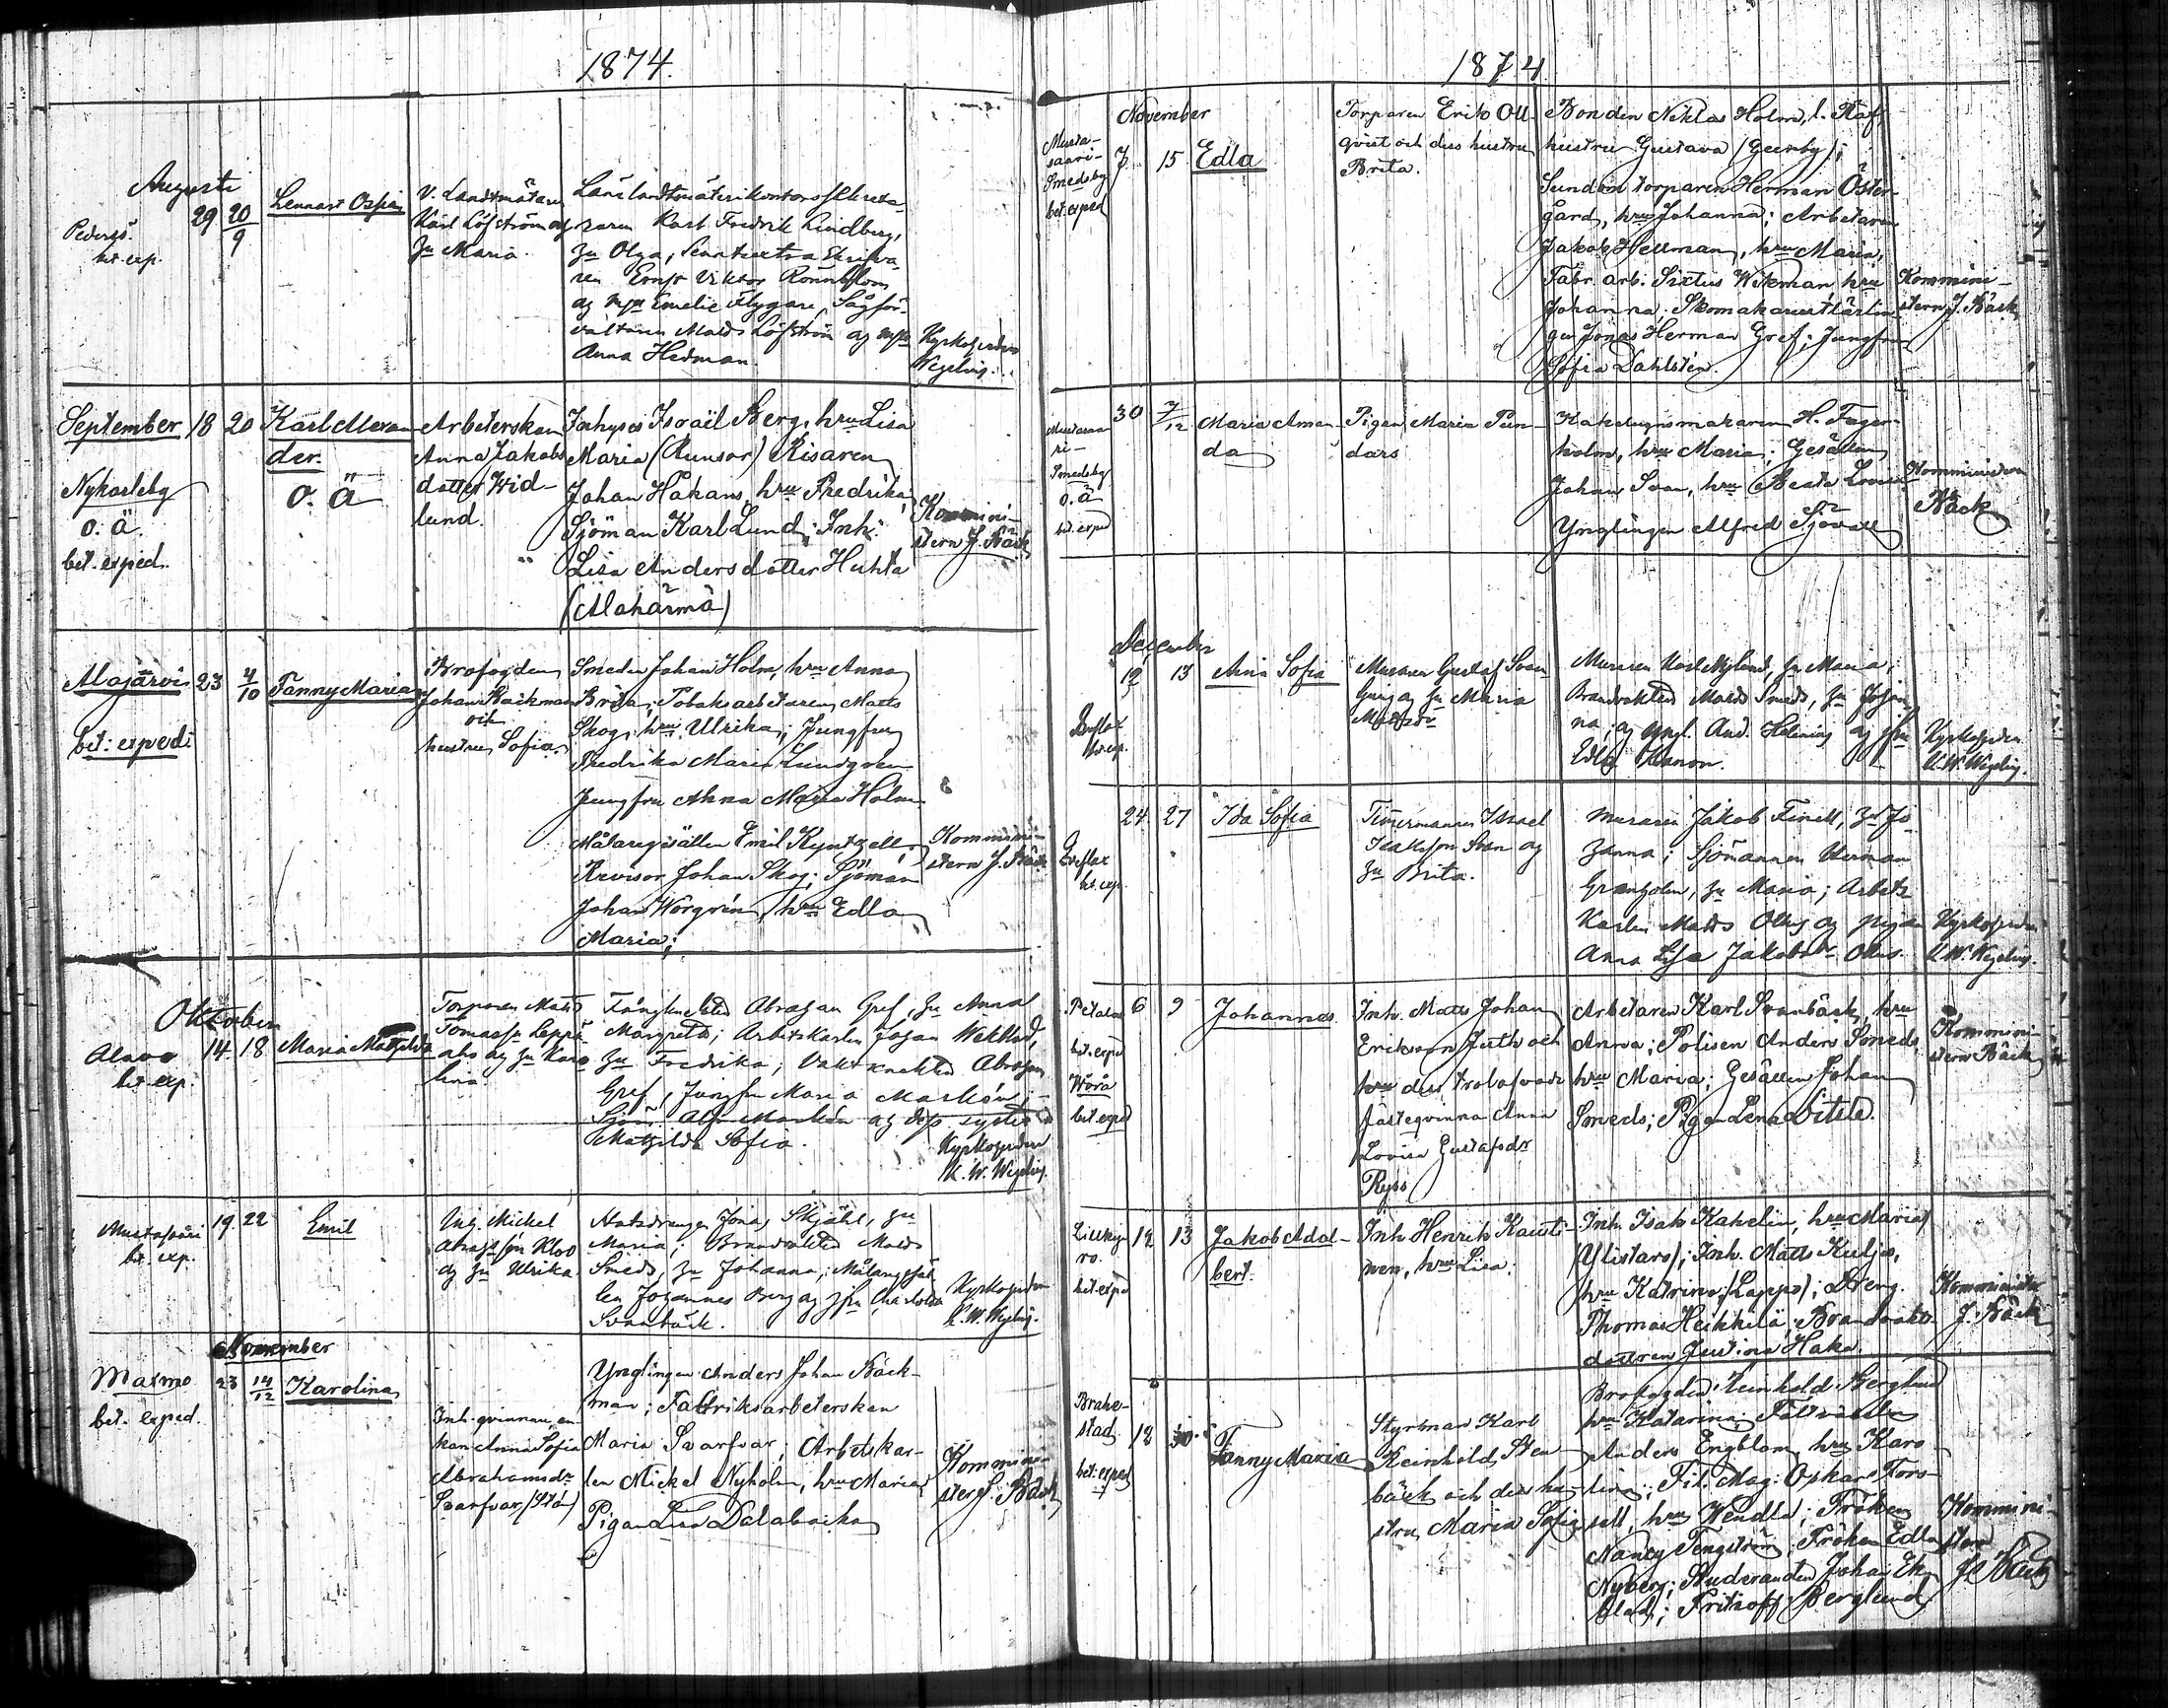 1874.
Augusti
Pedersö.
bet. exp.
29 20/9
Lennart Ossian
V. Landtmätaren
Karl Löfström og
hu Maria.
Länslandtmäterikontorssekrete-
raren Karl Fredrik Lindberg,
hu Olga, Senatsextra Skrifva-
ren Ernst Viktor Rönnblom
og Emelie Flygare, Sågför-
valtaren Matts Löfström og
Anna Hedman.
Kyrkoherden
Wegelius.
September 18 20
Nykarleby
o. ä.
bet. exped.
Karl Alexan
der.
o. ä
Arbeterskan
Anna Jakobs
dotter Wid-
lund.
Inhyses Israël Berg, hru Lisa
Maria (Runsor) Risaren
Johan Håkans, hru Fredrika;
Sjöman Karl Lund; Inh:
Lisa Andersdotter Huhta
(Alahärmä)
Kommini-
stern J. Bäck
Alajärvi 23 4/10
bet: exped:
Fanny Maria
Brofogden
Johan Backman
och
hustru Sofia.
Smeden Johan Holm, hru Anna
Brita; Tobaksarbetaren Matts
Skog, hru Ulrika; Jungfru
Fredrika Maria Lundgren
Jungfru Anna Maria Holm
Målaregesällen Emil Kyntzell
Revisor Johan Skog; Sjöman
Johan Norgrén, hru Edla
Maria;
Kommini-
stern J. Bäck
Oktober
Alavo 14 18
bet. exp.
Maria Mathilda
Torparen Matts
Tomass. Leppä-
aho og hu Karo
lina.
Fångknekten Abraham Gref, hu Anna
Margreta; Arbetskarlen Johan Weklund,
hu Fredrika; Vaktknekten Abraham
Gref, Jungfru Maria Maskén;
Sjöm. Alfr. Maskén og dess syster
Mathilda Sofia.
Kyrkoherden
K. W. Wegelius.
Mustasaari
bet. exp.
19 22
Emil
Mickel
Abrahamsson Kloo
og hu Ulrika.
Stadsdrängen Jonas Skjähl, hu
Maria; Brandvakten Matts
Smeds, hu Johanna; Målaregesäl
len Johannes Berg og jfru Charlotta
Svanbäck.
Kyrkoherden
K. W. Wegelius.
November
Maxmo 23 14/12
bet. exped.
Karolina
Inh. qvinnan, en-
kan Anna Sofia
Abrahamsdr
Svarfvar
Ynglingen Anders Johan Bäck-
man; Fabriksarbeterskan
Maria Svarfvar; Arbetskar-
len Mickel Nyholm, hru Maria;
Pigan Lisa Dalabacka
Kommini-
ster J. Bäck
1874
November
Musta-
saari-
Smedsby
bet. exped
7 15 Edla
Torparen Erik Oll-
qvist och dess hustru
Brita.
Bonden Niklas Holm, l. Raf,
hustru Gustava (Gerby);
Sundom torparen Herman Öster-
gård, hru Johanna; Arbetaren
Jakob Hellman, hru Maria,
Fabr. arb. Sixtus Wikman hru
Johanna; Skomakarelärlin-
gen Jonas Herman Gref; Jungfru
Sofia Dahlstén.
Kommini-
stern J. Bäck
Mustasaa-
ri-
Smedsby
o. ä
bet. exped
30 7/12
Maria Aman-
da
Pigan Maria Pun-
dars
Kakelugnsmakaren H. Fager-
holm, hru Maria; Gesällen
Johan Svan, hru Beata Lovisa
Ynglingen Alfred Sjövall
Kommini­stern
Bäck
December
12 13
Qveflax
bet. exp.
Aina Sofia
Muraren Gustaf Svan-
ljung og hu Maria
Matsdr
Muraren Karl Nylund, hu Maria;
Brandvakten Matts Smeds, hu Johan-
na; og yngl. And. Helenius og jfru
Edla Thenon.
Kyrkoherden
K. W. Wegelius.
24 27
Qveflax
bet. exp.
Ida Sofia
Timmermannen Israel
Isaksson Sven og
hu Brita.
Muraren Jakob Finell, hu Jo-
hanna; Sjömannen Herman
Granholm, hu Maria; Arbets-
karlen Matts Ollus og pigan
Anna Lisa Jakobsdr Ollus.
Kyrkoherden
K. W. Wegelius.
Petalax 6 9
bet. exped
Wörå
bet. exped
Johannes
Inh. Matts Johan
Eriksson Juth och
hru dess trolofvade
fästeqvinna Anna
Lovisa Gustafsdr
Ryss
Arbetaren Karl Svanbäck, hru
Anna; Polisen Anders Smeds
hru Maria; Gesällen Johan
Smeds; Pigan Lena
Kommini-
stern Bäck
Lillky-
ro.
bet. exped
12 13
Jakob Adal-
bert.
Inh. Henrik Kausti-
nen, hru Lisa;
Inh. Isak Kahelin, hru Maria
(Ylistaro); Inh. Matts Kuljo,
hru Katrina (Lappo); Dreng
Thomas Heikkilä; Brandvakts-
dottren Justina Haka.
Kommini­ster
J. Bäck
Brahe-
stad
bet. exped
12
Fanny Maria
Styrman Karl
Reinhold Sten-
bäck och dess hu-
stru Maria Sofia
Brofogden Reinhold Berglund
hru Katarina; Fältväbeln
Anders Engblom, hru Karo-
lina; Fil. Mag. Oskar Fors-
sell, hru Wendla; Fröken
Nancy Tengström; Fröken Edla
Nyberg; Studeranden Johan Ek-
blad; Fritioff Berglund
Kommini-
stern
J. Bäck